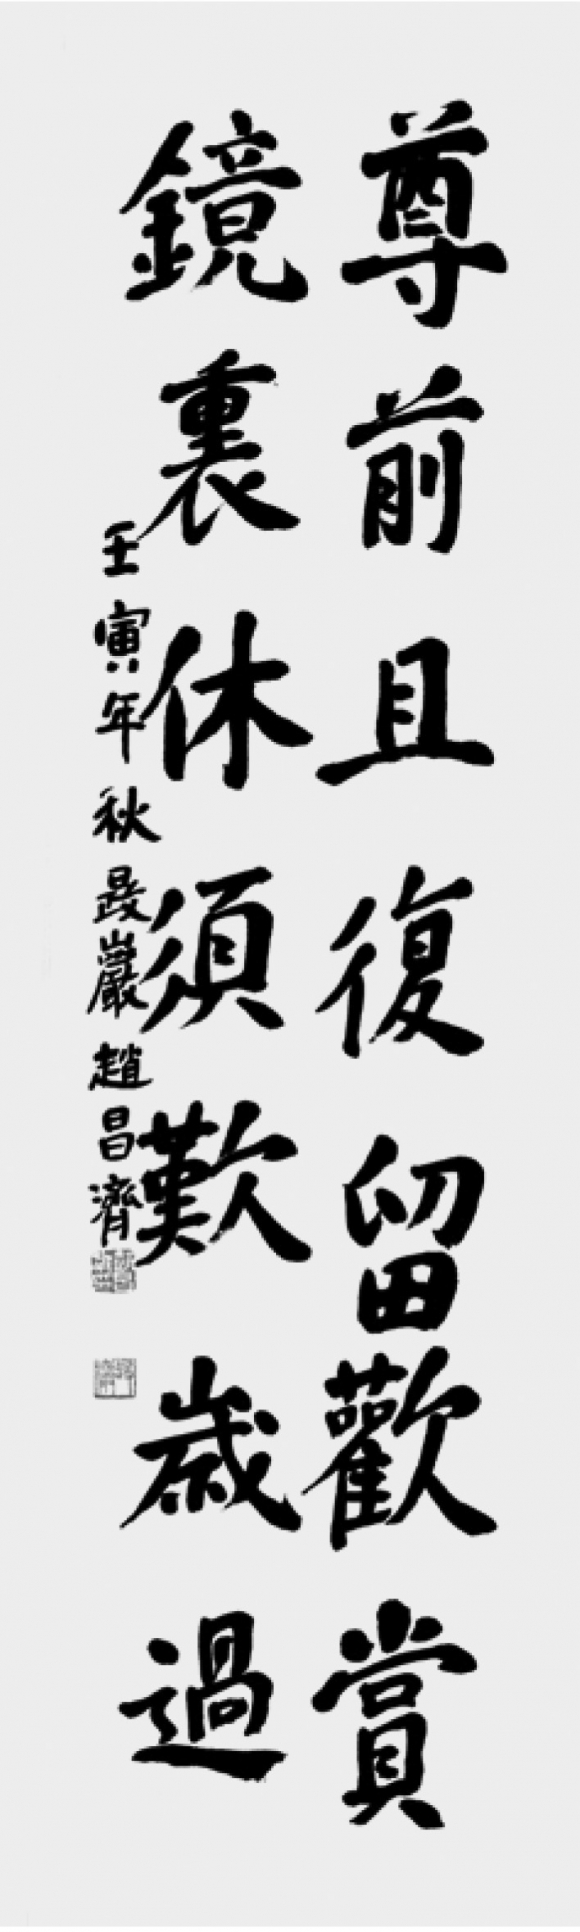 尊前且復留歡賞
鏡裏休須歎歲過
壬寅年秋晸巖趙昌濟